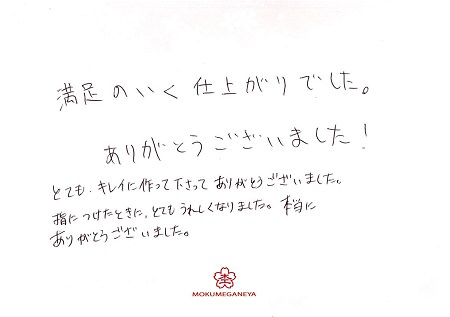 満足のいく仕上がりでした。
ありがとうございました！
とても、キレイに作って下さってありがとうございました。
指につけたときに、とてもうれしくなりました。本当に
ありがとうございました。
MOKUMEGANEYA